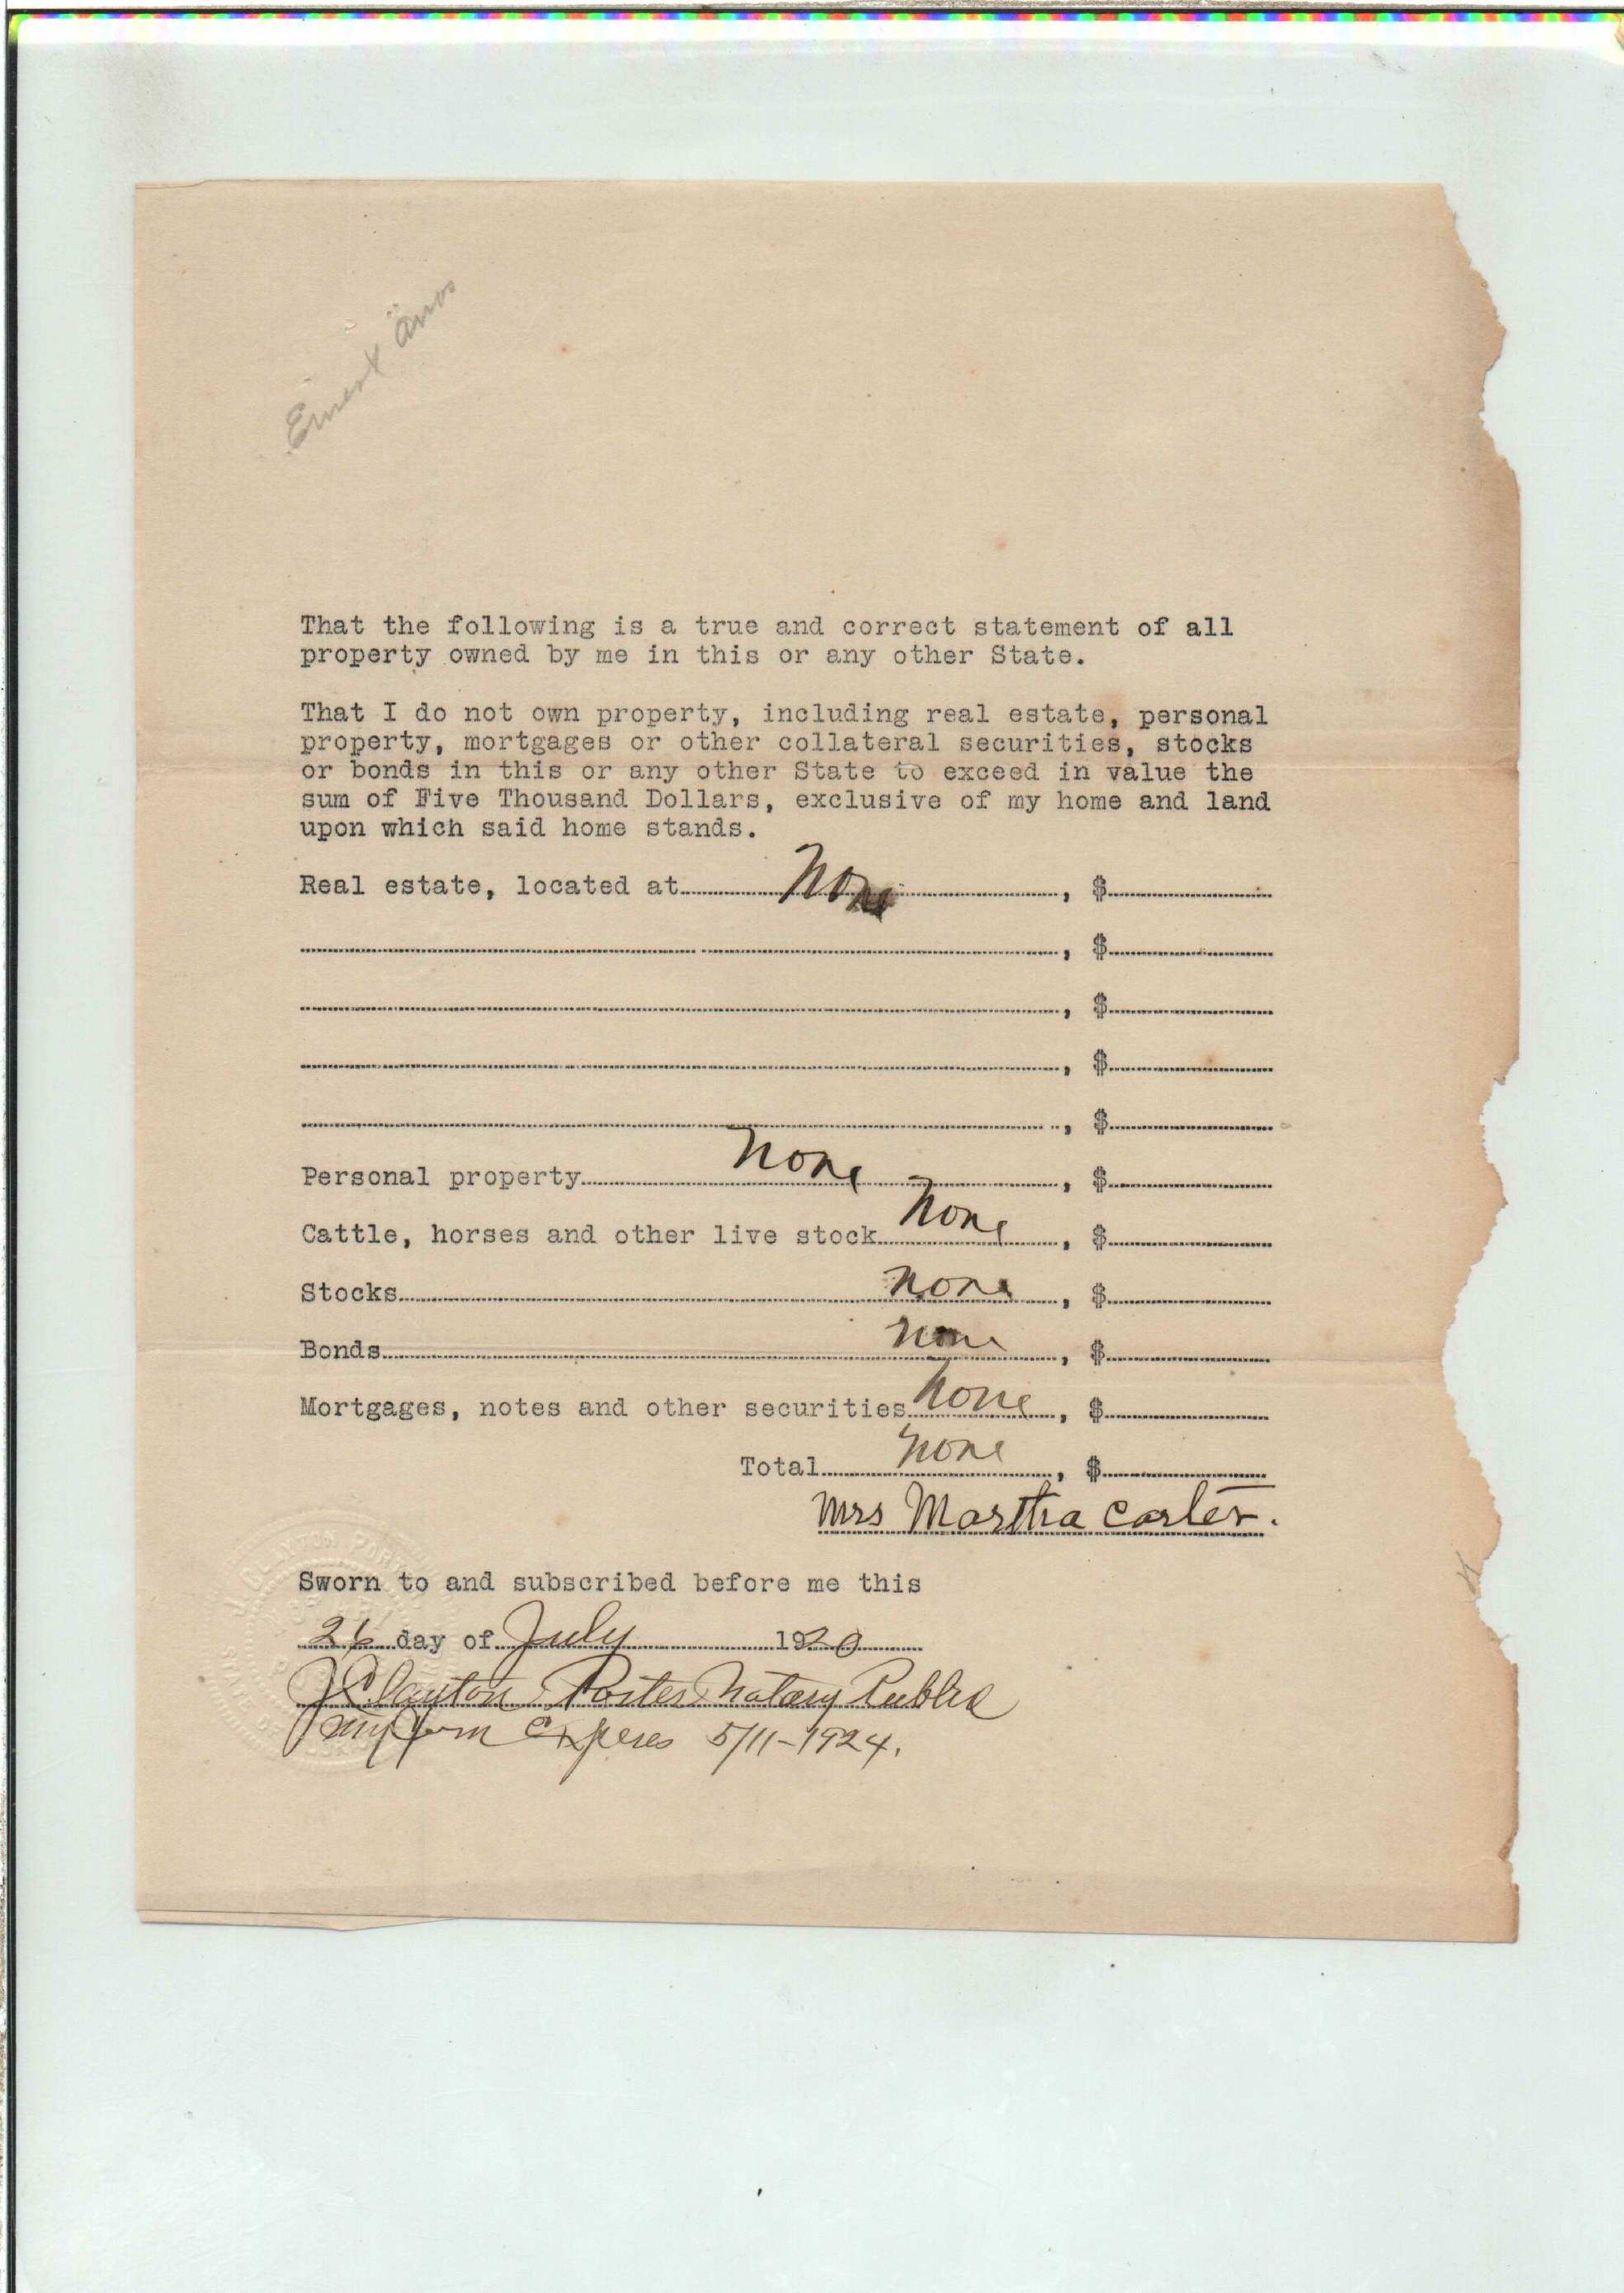 Ernest
That the following is a true and correct statement of all
property owned by me in this or any other State.
That I do not own property, including real estate, personal
property, mortgages or other collateral securities, stocks
or bonds in this or any other State to exceed in value the
sum of Five Thousand Dollars, exclusive of my home and land
upon which said home stands.
Real estate, located at None, $
, $
, $
, $
, $
Personal property None, $
Cattle, horses and other live stock None, $
Stocks None, $
Bonds None, $
Mortgages, notes and other securities None, $
Total None, $
Mrs Martha Carter.
Sworn to and subscribed before me this
26 day of July 1920
J Clayton Porter Notary Public
My Com Experes 5/11-1924.
J. CLAYTON PORTER
STATE OF